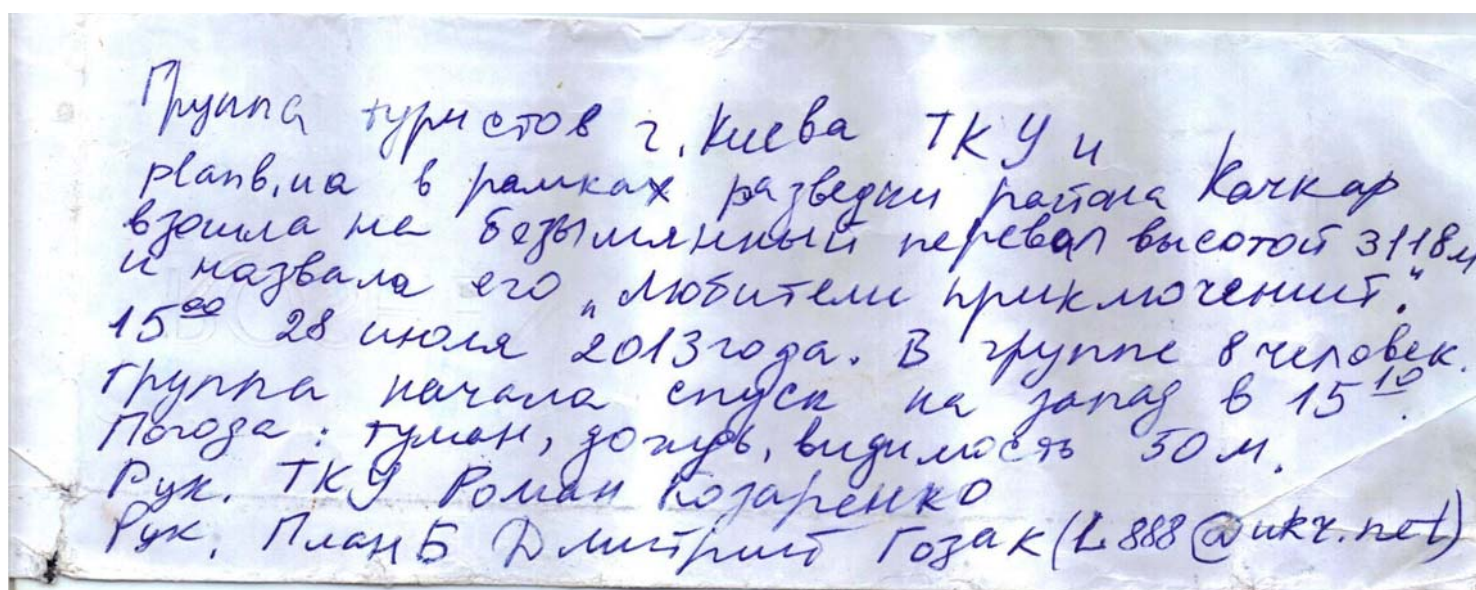 Группа туристов г. Киева ТКУ и
planb.ua в рамках разведки района Качкар
взошла на безымянный перевал высотой 3118м
и назвала его „Любители приключений“.
15⁰⁰ 28 июля 2013 года. В группе 8 человек.
Группа начала спуск на запад в 15¹⁰.
Погода: туман, дождь, видимость 50 м.
Рук. ТКУ Роман Козаренко
Рук. План Б Дмитрий Гозак (L888@ukr.net)